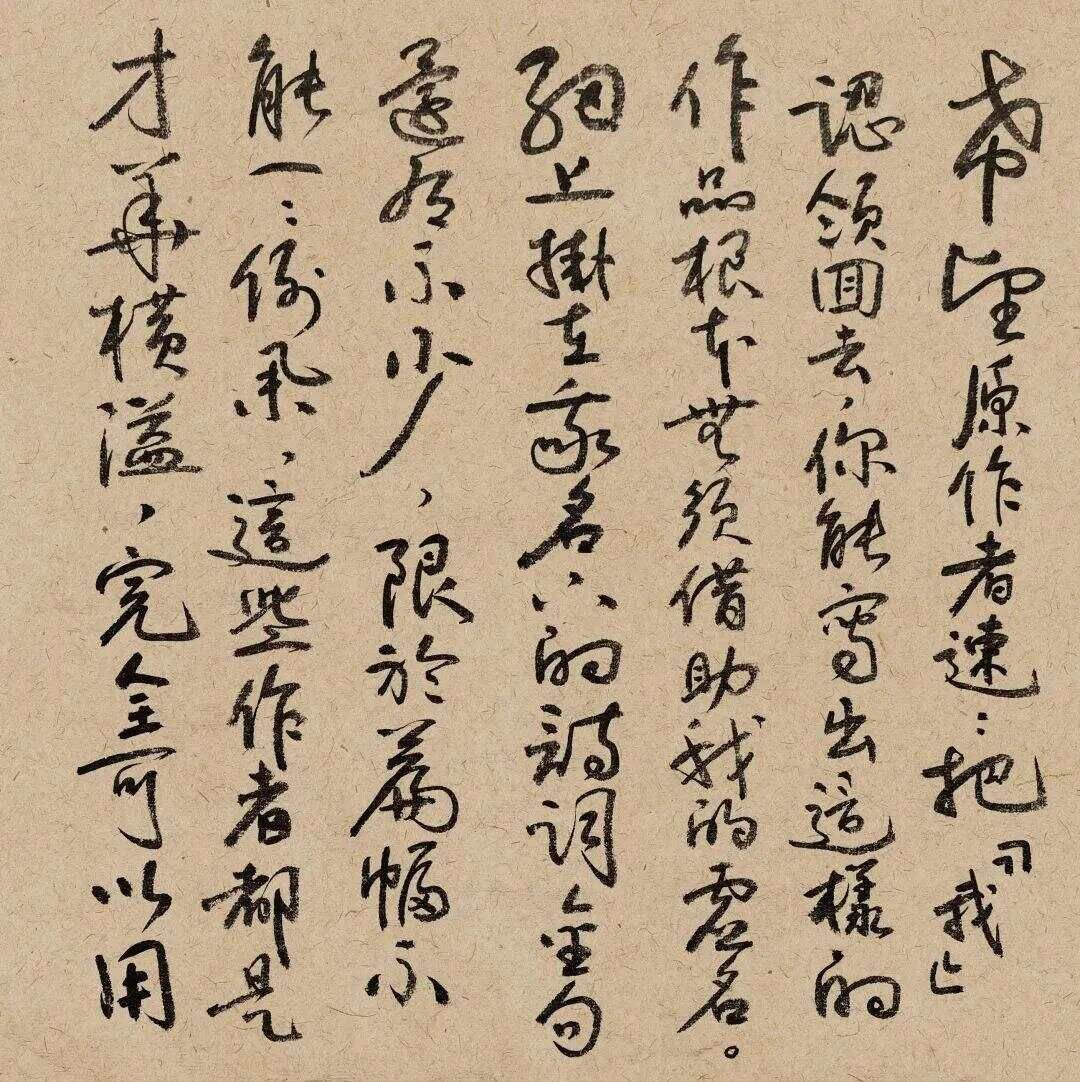 希望原作者速：把『我』
認領回去，你能寫出這樣的
作品根本無須借助我的虛名。
網上掛在我名下的詩詞金句
還有不少，限於篇幅不
能一：例舉，這些作者都是
才華橫溢，完全可以用